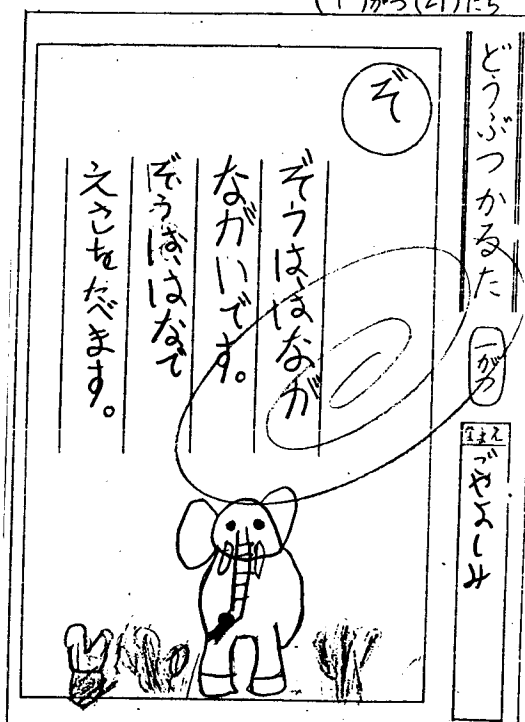 (1)がつ(21)にち
どうぶつかるた
一がつ
なまえ
ごやよしみ
ぞ
ぞうは、はなが
ながいです。
ぞうは、はなで
えさをたべます。